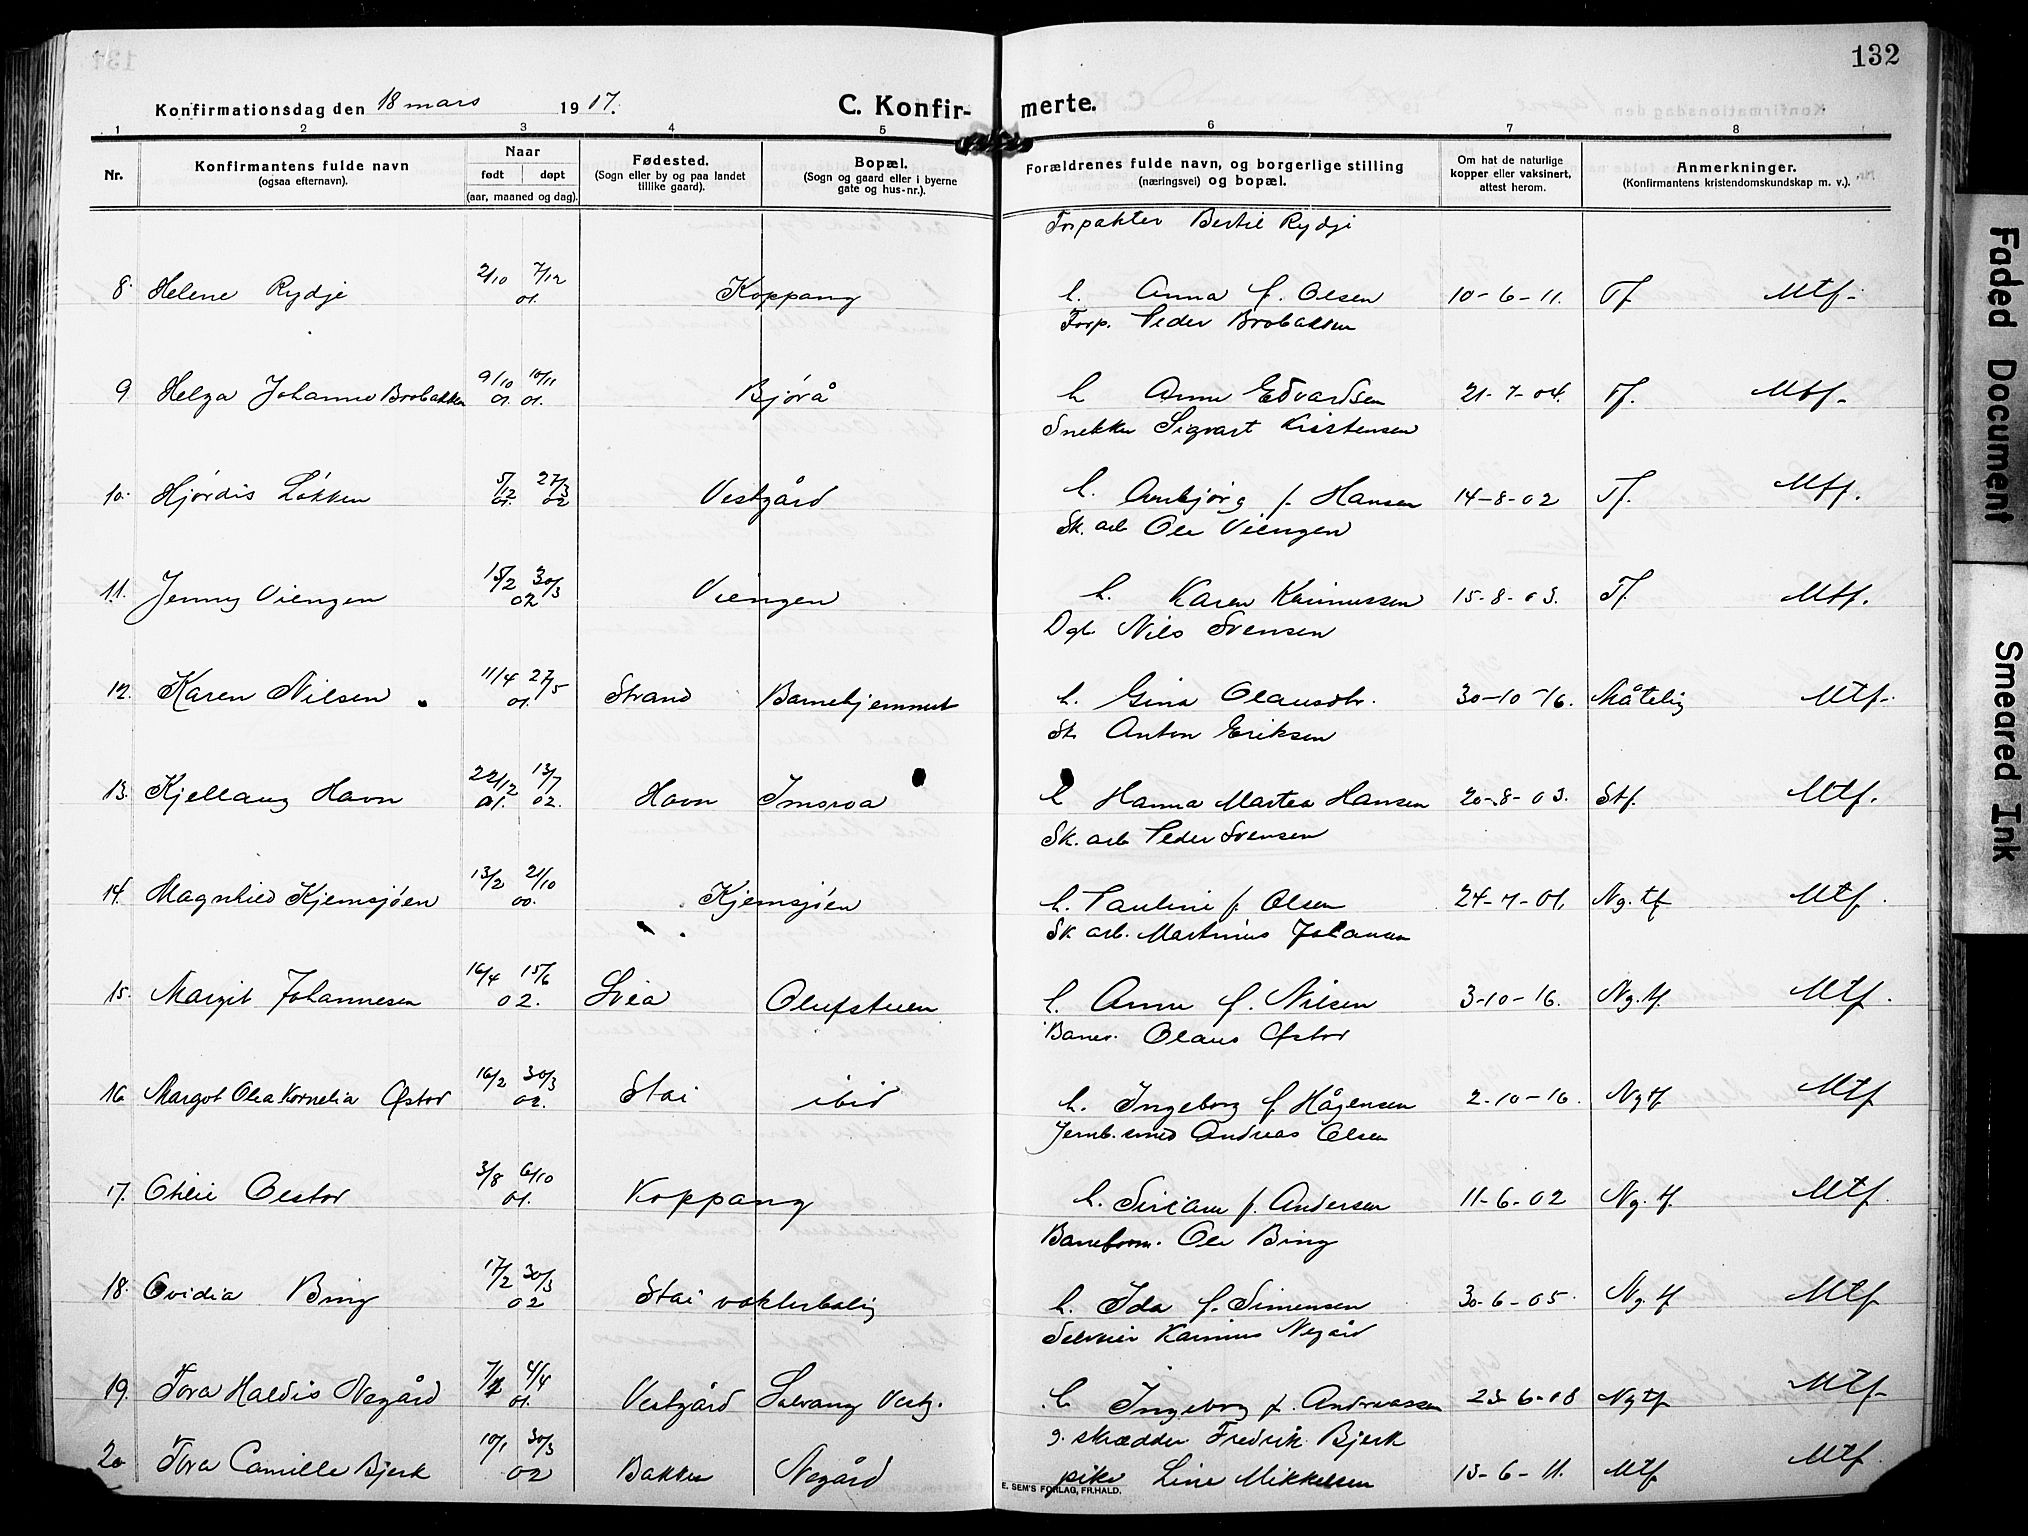 132
Konfirmationsdag den 18 mars 1917.
C. Konfir-
merte.
1 2 3 4 5 6 7 8
Nr.
Konfirmantens fulde navn
(ogsaa efternavn).
Naar
født døpt
(aar, maaned og dag).
Fødested.
(Sogn eller by og paa landet
tillike gaard).
Bopæl.
(Sogn og gaard eller i byerne
gate og hus-nr.).
Forældrenes fulde navn, og borgerlige stilling
(næringsvei) og bopæl.
Om hat de naturlige
kopper eller vaksinert,
attest herom.
Anmerkninger.
(Konfirmantens kristendomskundskap m. v.).
Forpakter Bertil Rydje
8. Helene Rydje 2/10 01. 7/12 Koppang h. Anna f. Olsen 10-6-11. Tf. Mtf.
Forp. Peder Brobakken
9 Helga Johanne Brobakken 9/10 01. 10/11 01. Bjørå h. Anne Edvardsen 21-7-04. Tf. Mtf.
Snekker Sigvart Kristensen
10. Hjørdis Løkken 5/12 01. 27/3 02 Vestgård h. Arnbjørg f. Hansen 14-8-02 Tf. Mtf.
Sk. arb Ole Viengen
11. Jenny Viengen 15/2 30/3 02 Viengen h. Karen 15-8-03. Tf. Mtf.
Dgl. Nils Svensen
12. Karen Nilsen 11/4 27/5 01. Strand Barnehjemmet h. Gina Olausdtr. 30-10-16. Måtelig Mtf.
St. Anton Eriksen
13. Kjellaug Havn 22/12 01. 13/7 02. Havn Imsroa h. Hanna Martea Hansen 20-8-03. Stf. Mtf.
Sk. arb Peder Svensen
14. Magnhild Kjemsjøen 13/2 21/10 00. Kjemsjøen h. Pauline f. Olsen 24-7-01. Ng. tf Mtf.
Sk arb. Martinius Johansen
15. Margit Johannesen 16/4 15/6 02. Svea Olufstuen h. Anne f. Nilsen 3-10-16. Ng. tf. Mtf.
Banev. Olaus Østor
16 Margot Olea Kornelia Østor 16/2 30/3 02. Stai ibid h. Ingeborg f Hågensen 2-10-16. Ng tf Mtf
Jernb. smed Andreas Olsen
17. Othilie Oestor 3/8 6/10 01. Koppang h. Siriann f. Andersen 11-6-02 Ng. tf. Mtf.
Baneform. Ole Bing
18. Ovidia Bing 17/2 30/3 02 Stai vokterbolig h. Ida f. Simensen 30-6-05. Ng. tf Mtf
Selveier Karinius Negård
19. Tora Haldis Negård 4/4 01. Vestgård Solvang Vestg. h. Ingeborg f. Andreassen 23-6-08 Ng tf Mtf
g. skrædder Fredrik Bjerk
20 Tora Camille Bjerk 10/1 30/3 02 Bakken Negård pike Line Mikkelsen 13-6-11. Mtf Mtf.
E. SEM'S FORLAG, FR.HALD.
Faded Document
Smeared Ink